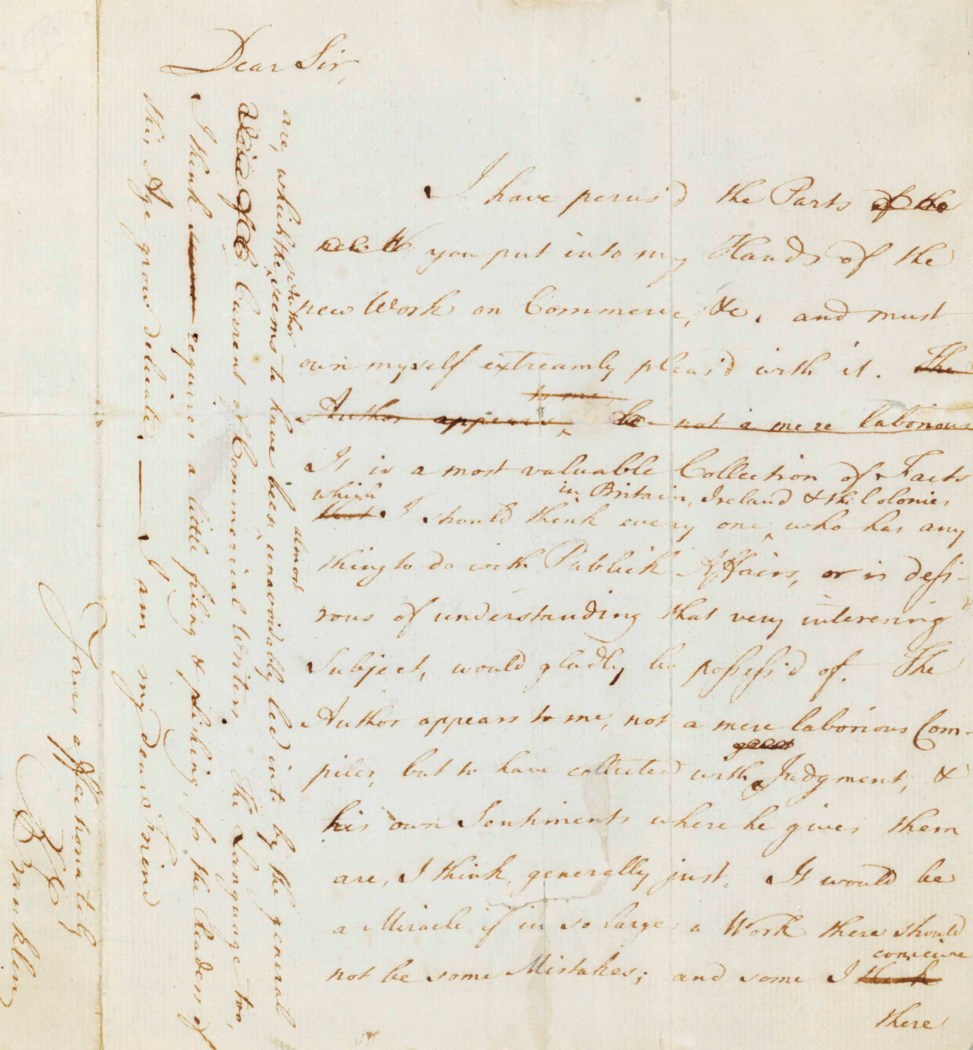 Dear Sir,
I have perus'd the Parts of the
you put into my Hands of the
new Work on Commerce, &c. and must
own myself extreamly pleas'd with it. The
to me
Author appears, be not a mere laborious
It is a most valuable Collection of Facts
which in Britain, Ireland & the Colonies
that I should think every one, who has any
thing to do with Publick Affairs, or is desi-
rous of understanding that very interesing
Subject, would gladly be possess'd of. The
Author appears to me, not a mere laborious Com-
piler, but to have collected with Judgment, &
his own Sentiments where he gives them
are, I think, generally just. It would be
a Miracle if in so large a Work there should
conceive
not be some Mistakes; and some I think
there
are, which the Author seems to have been almost unavoidably led into by the general
Current of Commercial Writers. The Language too,
I think requires a little filing & polishing, for the Readers of
this Age grow delicate. — I am, my dear Friend
Yours affectionately
B Franklin